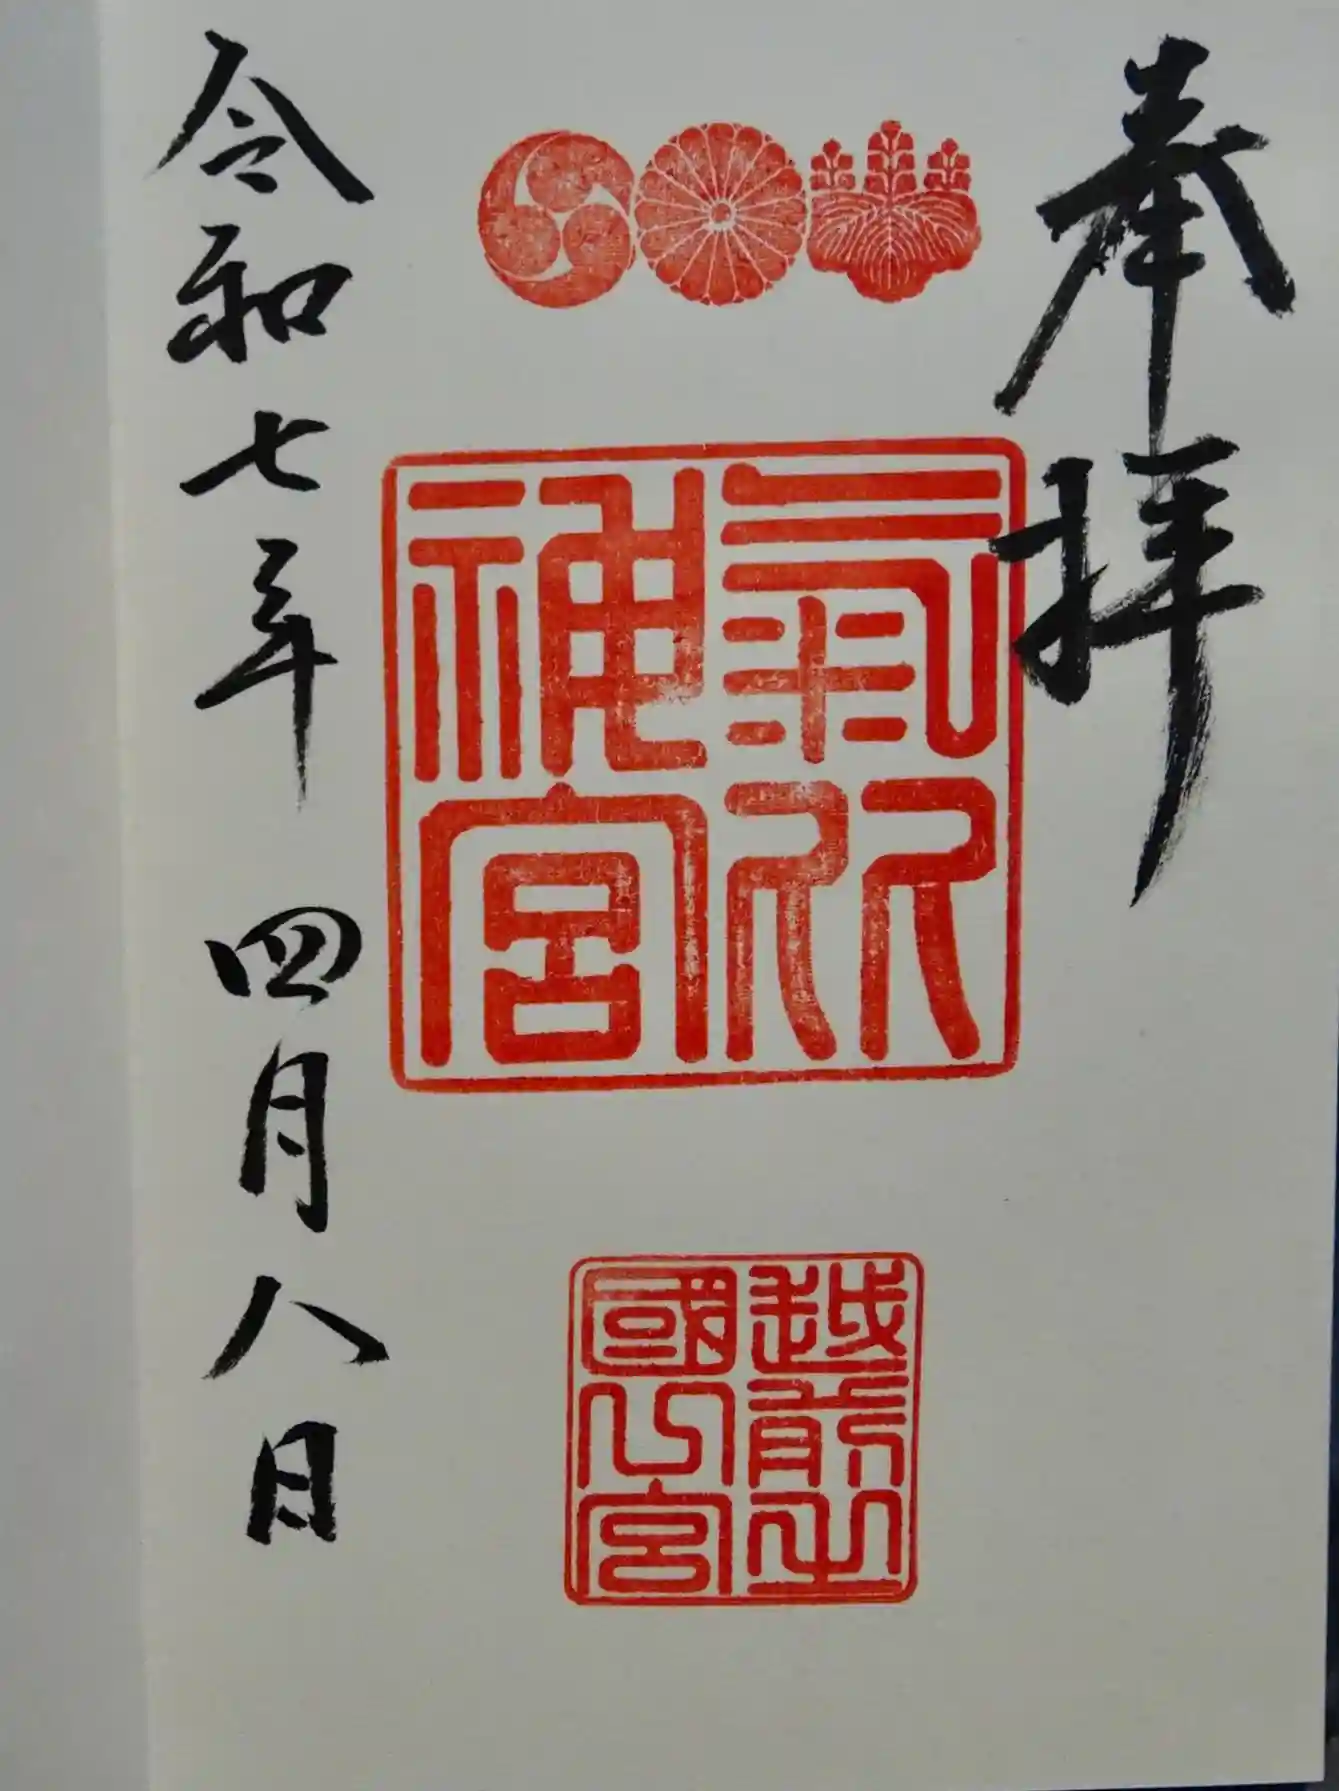 奉拝
氣比
神宮
越前
國
宮
令和七年 四月八日